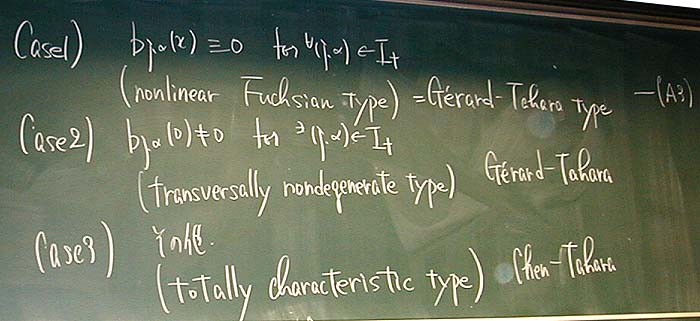 (Case1) b_{j,α}(x) ≡ 0 for ∀(j,α) ∈ I_+
(nonlinear Fuchsian type) = Gérard-Tahara type —(A3)
(Case2) b_{j,α}(0) ≠ 0 for ∃(j,α) ∈ I_+
(transversally nondegenerate type) Gérard-Tahara
(Case3) その他.
(totally characteristic type) Chen-Tahara